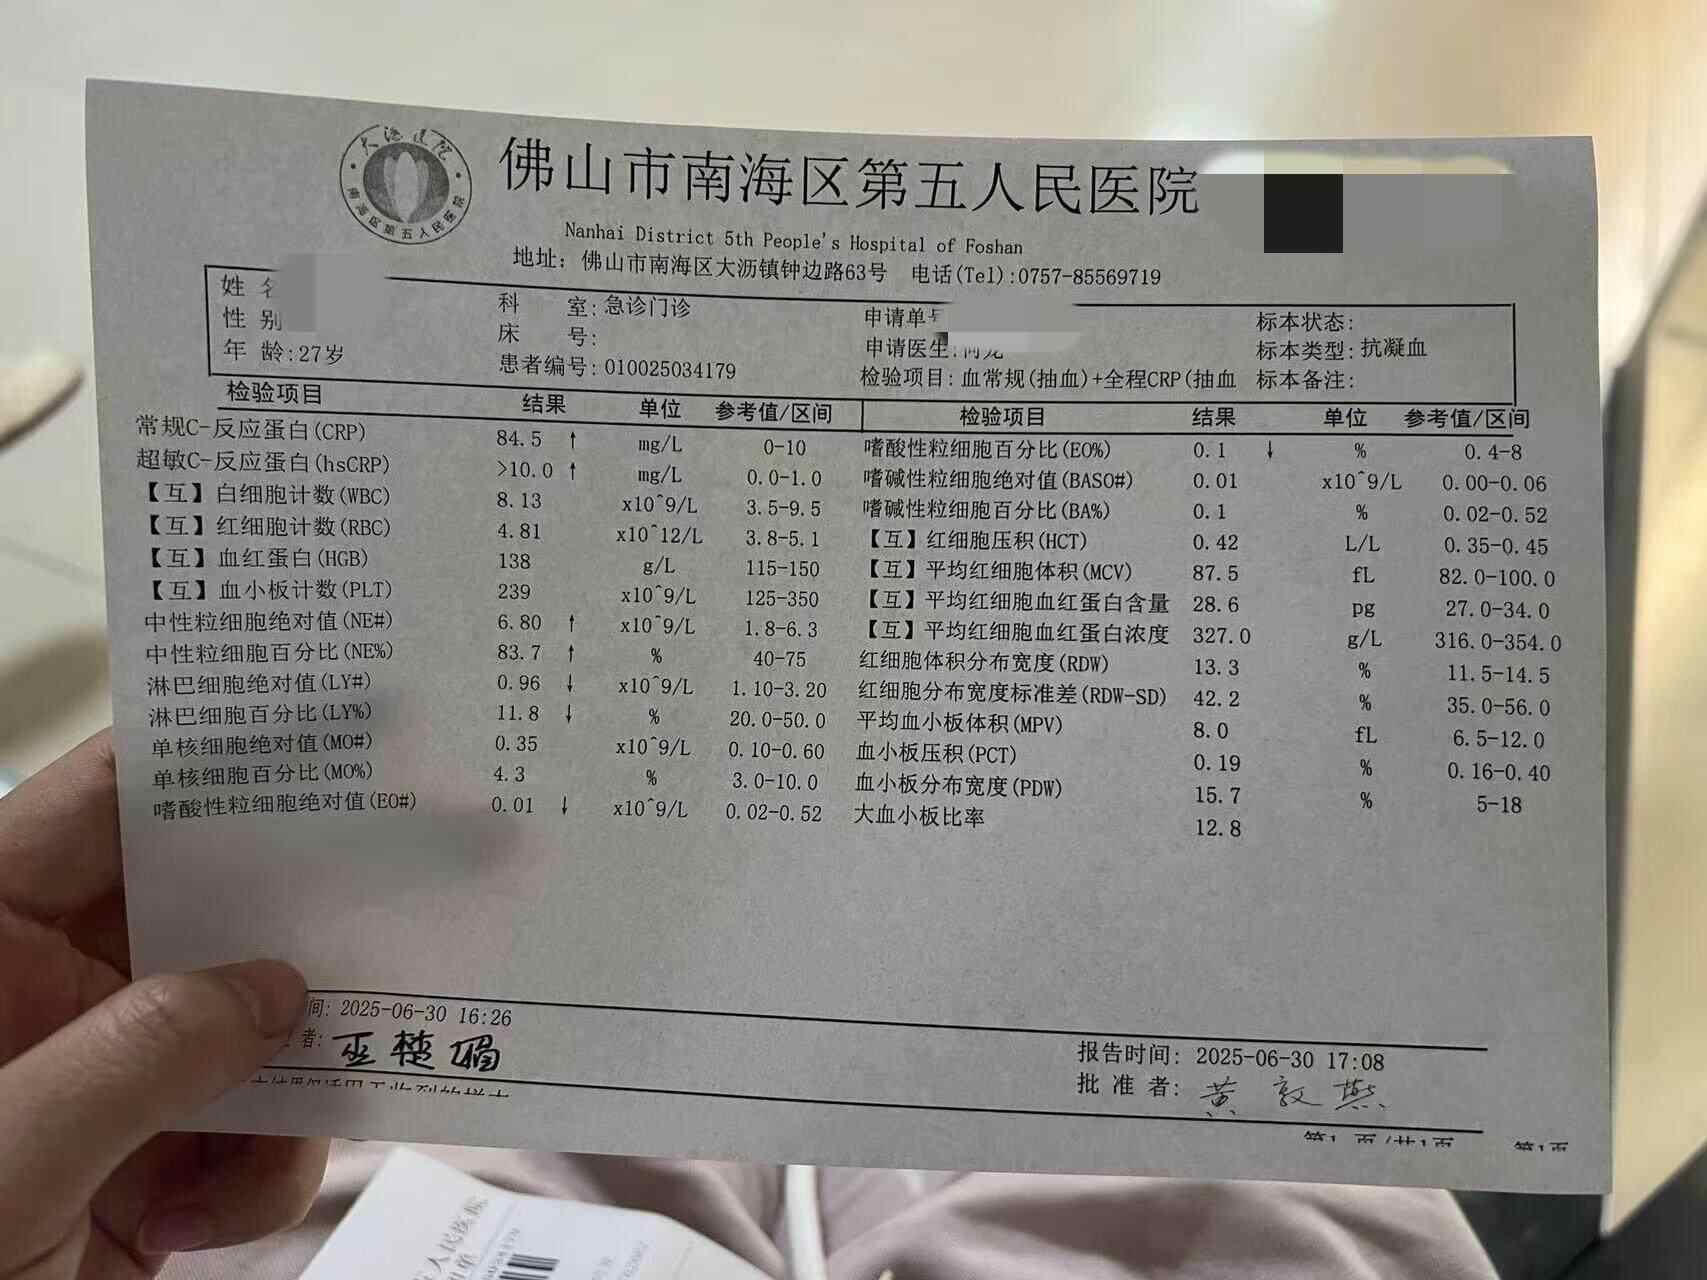 大沥医院
南海区第五人民医院
佛山市南海区第五人民医院
Nanhai District 5th People's Hospital of Foshan
地址: 佛山市南海区大沥镇钟边路63号 电话(Tel):0757-85569719
姓 名 科 室: 急诊门诊 申请单号 标本状态:
性 别 床 号: 申请医生: 标本类型: 抗凝血
年 龄: 27岁 患者编号: 010025034179 检验项目: 血常规(抽血)+全程CRP(抽血 标本备注:
检验项目 结果 单位 参考值/区间 检验项目 结果 单位 参考值/区间
常规C-反应蛋白(CRP) 84.5 ↑ mg/L 0-10 嗜酸性粒细胞百分比(EO%) 0.1 ↓ % 0.4-8
超敏C-反应蛋白(hsCRP) >10.0 ↑ mg/L 0.0-1.0 嗜碱性粒细胞绝对值(BASO#) 0.01 x10^9/L 0.00-0.06
【互】白细胞计数(WBC) 8.13 x10^9/L 3.5-9.5 嗜碱性粒细胞百分比(BA%) 0.1 % 0.02-0.52
【互】红细胞计数(RBC) 4.81 x10^12/L 3.8-5.1 【互】红细胞压积(HCT) 0.42 L/L 0.35-0.45
【互】血红蛋白(HGB) 138 g/L 115-150 【互】平均红细胞体积(MCV) 87.5 fL 82.0-100.0
【互】血小板计数(PLT) 239 x10^9/L 125-350 【互】平均红细胞血红蛋白含量 28.6 pg 27.0-34.0
中性粒细胞绝对值(NE#) 6.80 ↑ x10^9/L 1.8-6.3 【互】平均红细胞血红蛋白浓度 327.0 g/L 316.0-354.0
中性粒细胞百分比(NE%) 83.7 ↑ % 40-75 红细胞体积分布宽度(RDW) 13.3 % 11.5-14.5
淋巴细胞绝对值(LY#) 0.96 ↓ x10^9/L 1.10-3.20 红细胞分布宽度标准差(RDW-SD) 42.2 % 35.0-56.0
淋巴细胞百分比(LY%) 11.8 ↓ % 20.0-50.0 平均血小板体积(MPV) 8.0 fL 6.5-12.0
单核细胞绝对值(MO#) 0.35 x10^9/L 0.10-0.60 血小板压积(PCT) 0.19 % 0.16-0.40
单核细胞百分比(MO%) 4.3 % 3.0-10.0 血小板分布宽度(PDW) 15.7 % 5-18
嗜酸性粒细胞绝对值(EO#) 0.01 ↓ x10^9/L 0.02-0.52 大血小板比率 12.8
间: 2025-06-30 16:26 报告时间: 2025-06-30 17:08
者: 巫楚媚 批 准 者: 黄敦燕
第1 页/共1页 第1页